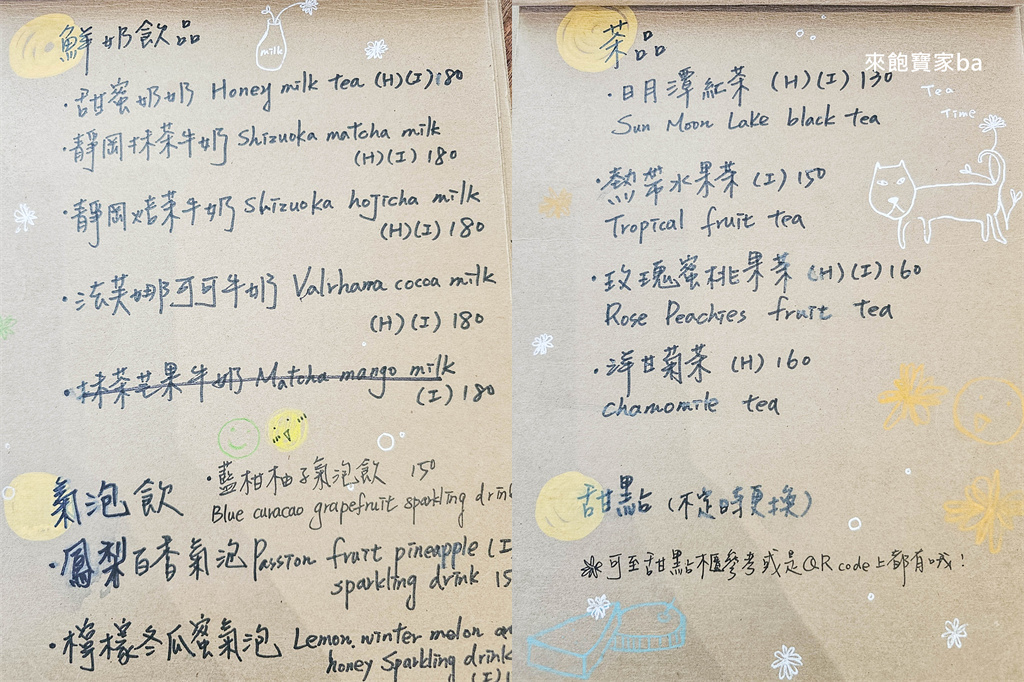 鮮奶飲品
milk
·甜蜜奶奶 Honey milk tea (H)(I) 180
·靜岡抹茶牛奶 Shizuoka matcha milk
(H)(I) 180
·靜岡焙茶牛奶 Shizuoka hojicha milk
(H)(I) 180
·法芙娜可可牛奶 Valrhana cocoa milk
(H)(I) 180
·抹茶芒果牛奶 Matcha mango milk
(I) 180
氣泡飲
·藍柑柚子氣泡飲 150
Blue curacao grapefruit sparkling drin
·鳳梨百香氣泡 Passion fruit pineapple (I
sparkling drink 15
·檸檬冬瓜蜜氣泡 Lemon. winter melon an
honey Sparkling drink
(I) 1
茶品
來飽寶家ba
Tea
Time
·日月潭紅茶 (H)(I) 130
Sun Moon Lake black tea
·熱帶水果茶 (I) 150
Tropical fruit tea
·玫瑰蜜桃果茶 (H)(I) 160
Rose Peachies fruit tea
·洋甘菊茶 (H) 160
chamomile tea
甜點 (不定時更換)
※可至甜點櫃參考或是QR code上都有哦!